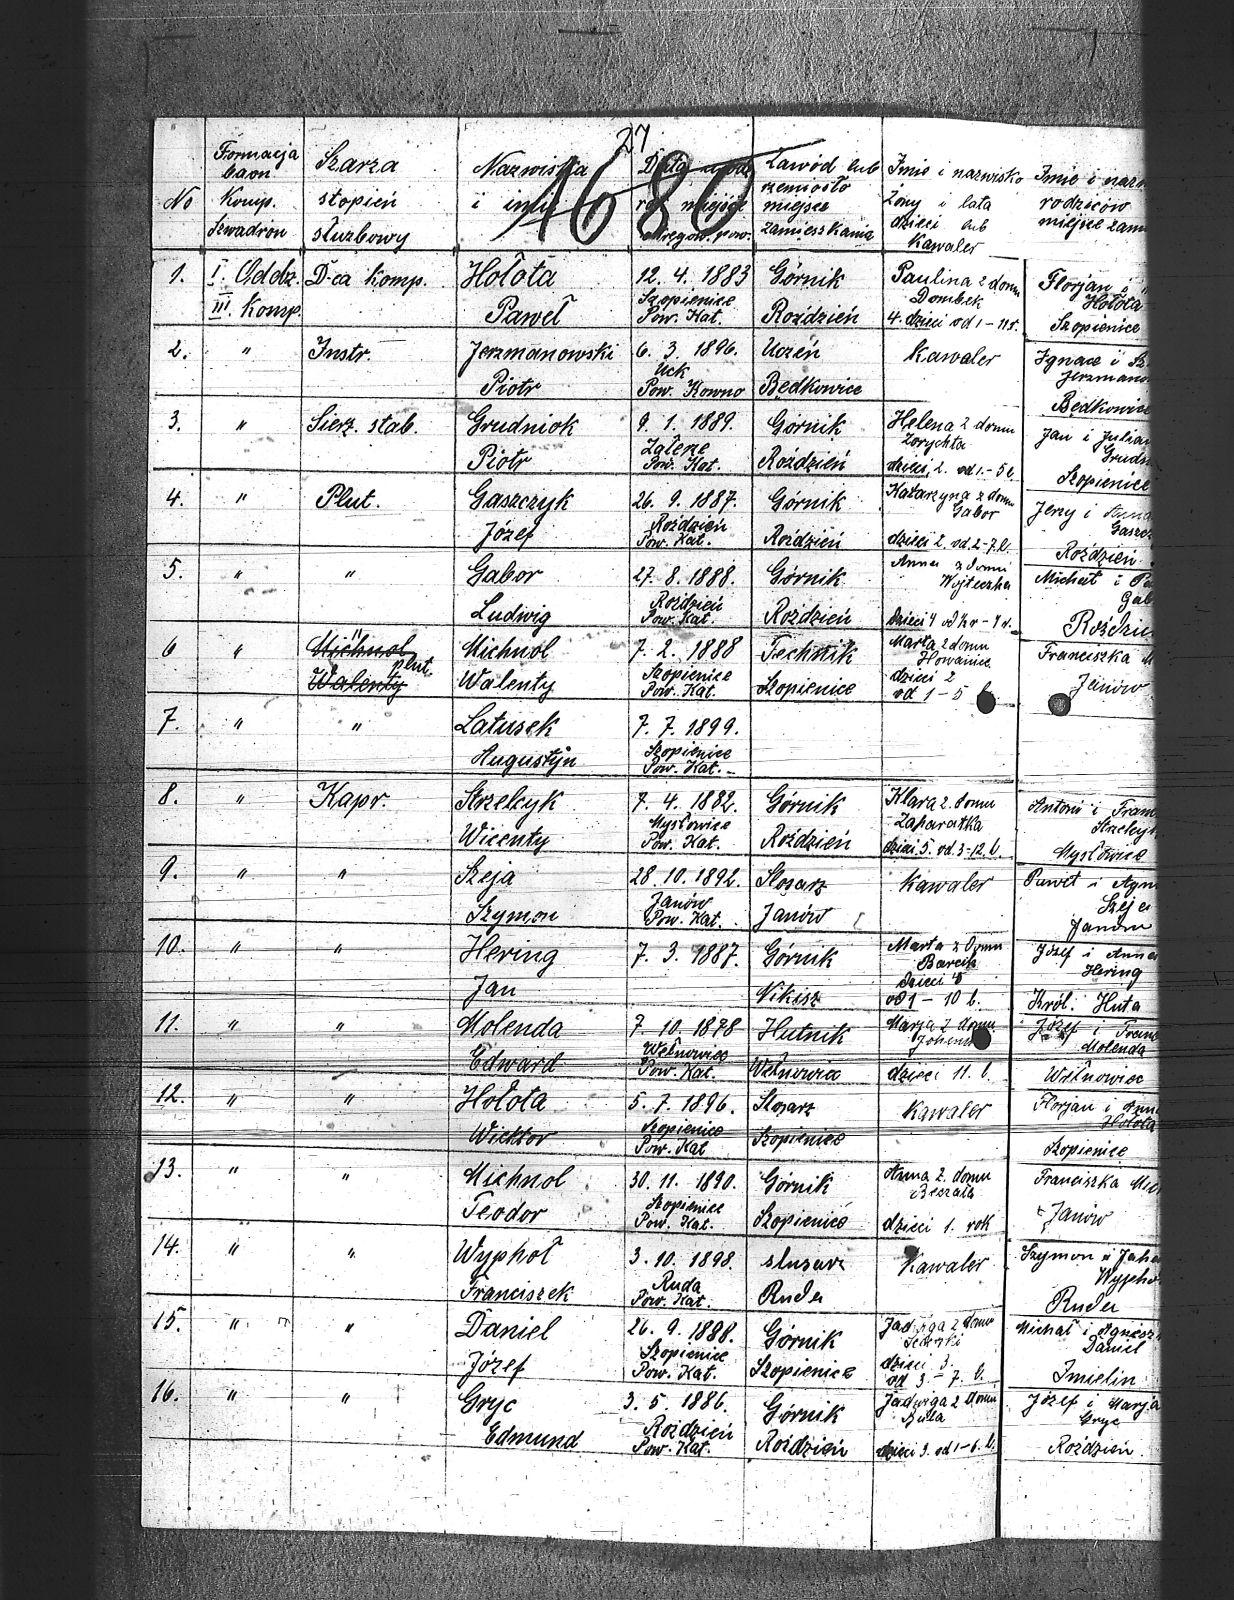 27
1680
No
Formacja
baon
Komp.
Szwadron
Szarza
stopień
służbowy
Nazwiska
i imię
Data
miejsce
okręgow. pow.
Zawód lub
rzemiosło
miejsce
zamieszkania
Imie i nazwisko
żony i lata
dzieci lub
Kawaler
Imie i nazw
rodziców
miejsce zam
1. I. Oddz. D-ca Komp. Hołota 12. 4. 1883 Górnik Paulina z domu Florjan i
III Komp. Paweł Szopienice Pow. Kat. Roździeń Dombek Hołota
4. dzieci od 1 - 11 r. Szopienice
2. " Instr. Jerzmanowski 6. 3. 1896. Uczeń Kawaler Ignace i
Piotr Uck Pow. Kowno Będkowice Jerzmano
Będkowice
3. " Sierz. stab. Grudniok 9. 1. 1889. Górnik Helena z domu Jan i Julian
Piotr Załeze Pow. Kat. Roździeń Zorychta Grudn
dzieci 2. od 1. - 5 l. Szopienice
4. " Plut. Gaszczyk 26. 9. 1887. Górnik Katarzyna z domu Jerzy i
Józef Roździeń Pow. Kat. Roździeń Gabor Gaszc
dzieci 2. od 2 - 7. l. Roździeń
5. " " Gabor 27. 8. 1888. Górnik Anna z domu Michał i
Ludwig Roździeń Pow. Kat. Roździeń Wojteczka Gab
Dzieci 4 od Roździe
6 " Michnol " Michnol 7. 2. 1888 Technik Marta z domu Franciszka M
Walenty plut. Walenty Szopienice Pow. Kat. Szopienice Howaniec Janów
dzieci 2
od 1 - 5 l.
7. " " Latusek 7. 7. 1899.
Augustyn Szopienice
Pow. Kat. -
8. " Kapr. Strzelcyk 7. 4. 1882. Górnik Klara z. domu Antoni i Fran
Wicenty Mysłowice Pow. Kat. Roździeń Zaharatka Strzelcyk
dzieci 5. od 3 - 12. l. Mysłowice
9. " " Szeja 28. 10. 1892. Slosarz Kawaler Paweł i Agn
Szymon Janów Pow. Kat. Janów Szeja
Janów
10. " " Hering 7. 3. 1887. Górnik Marta z domu Józef i Anna
Jan Nikisz Barcik Hering
Dzieci
od 1 - 10 l. Król. Huta
11. " " Molenda 7. 10. 1878 Hutnik Marja z domu Józef i Franc
Edward Wełnowiec Pow. Kat. Wełnowiec Molenda
dzieci 11. l. Wełnowiec
12. " " Hołota 5. 7. 1896. Slosarz Kawaler Florjan i
Wicktor Szopienice Pow. Kat Szopienice Hołota
Szopienice
13. " " Michnol 30. 11. 1890. Górnik Anna z. domu Franciszka Mich
Teodor Szopienice Pow. Kat. Szopienice Janów
dzieci 1. rok
14. " " Wyphoł 3. 10. 1898. slusarz Kawaler Szymon i Joha
Franciszek Ruda Pow. Kat. Ruda Wypho
Ruda
15. " " Daniel 26. 9. 1888. Górnik Jadwiga z domu Michał i Agniesz
Józef Szopienice Pow. Kat. Szopienice dzieci 3. Daniel
od 3 - 7. l. Imielin
16. " " Gryc 3. 5. 1886. Górnik Jadwiga z domu Józef i Marja
Edmund Roździeń Pow. Kat. Roździeń Bula Gryc
dzieci 3. od 1 - 6. l. Roździeń